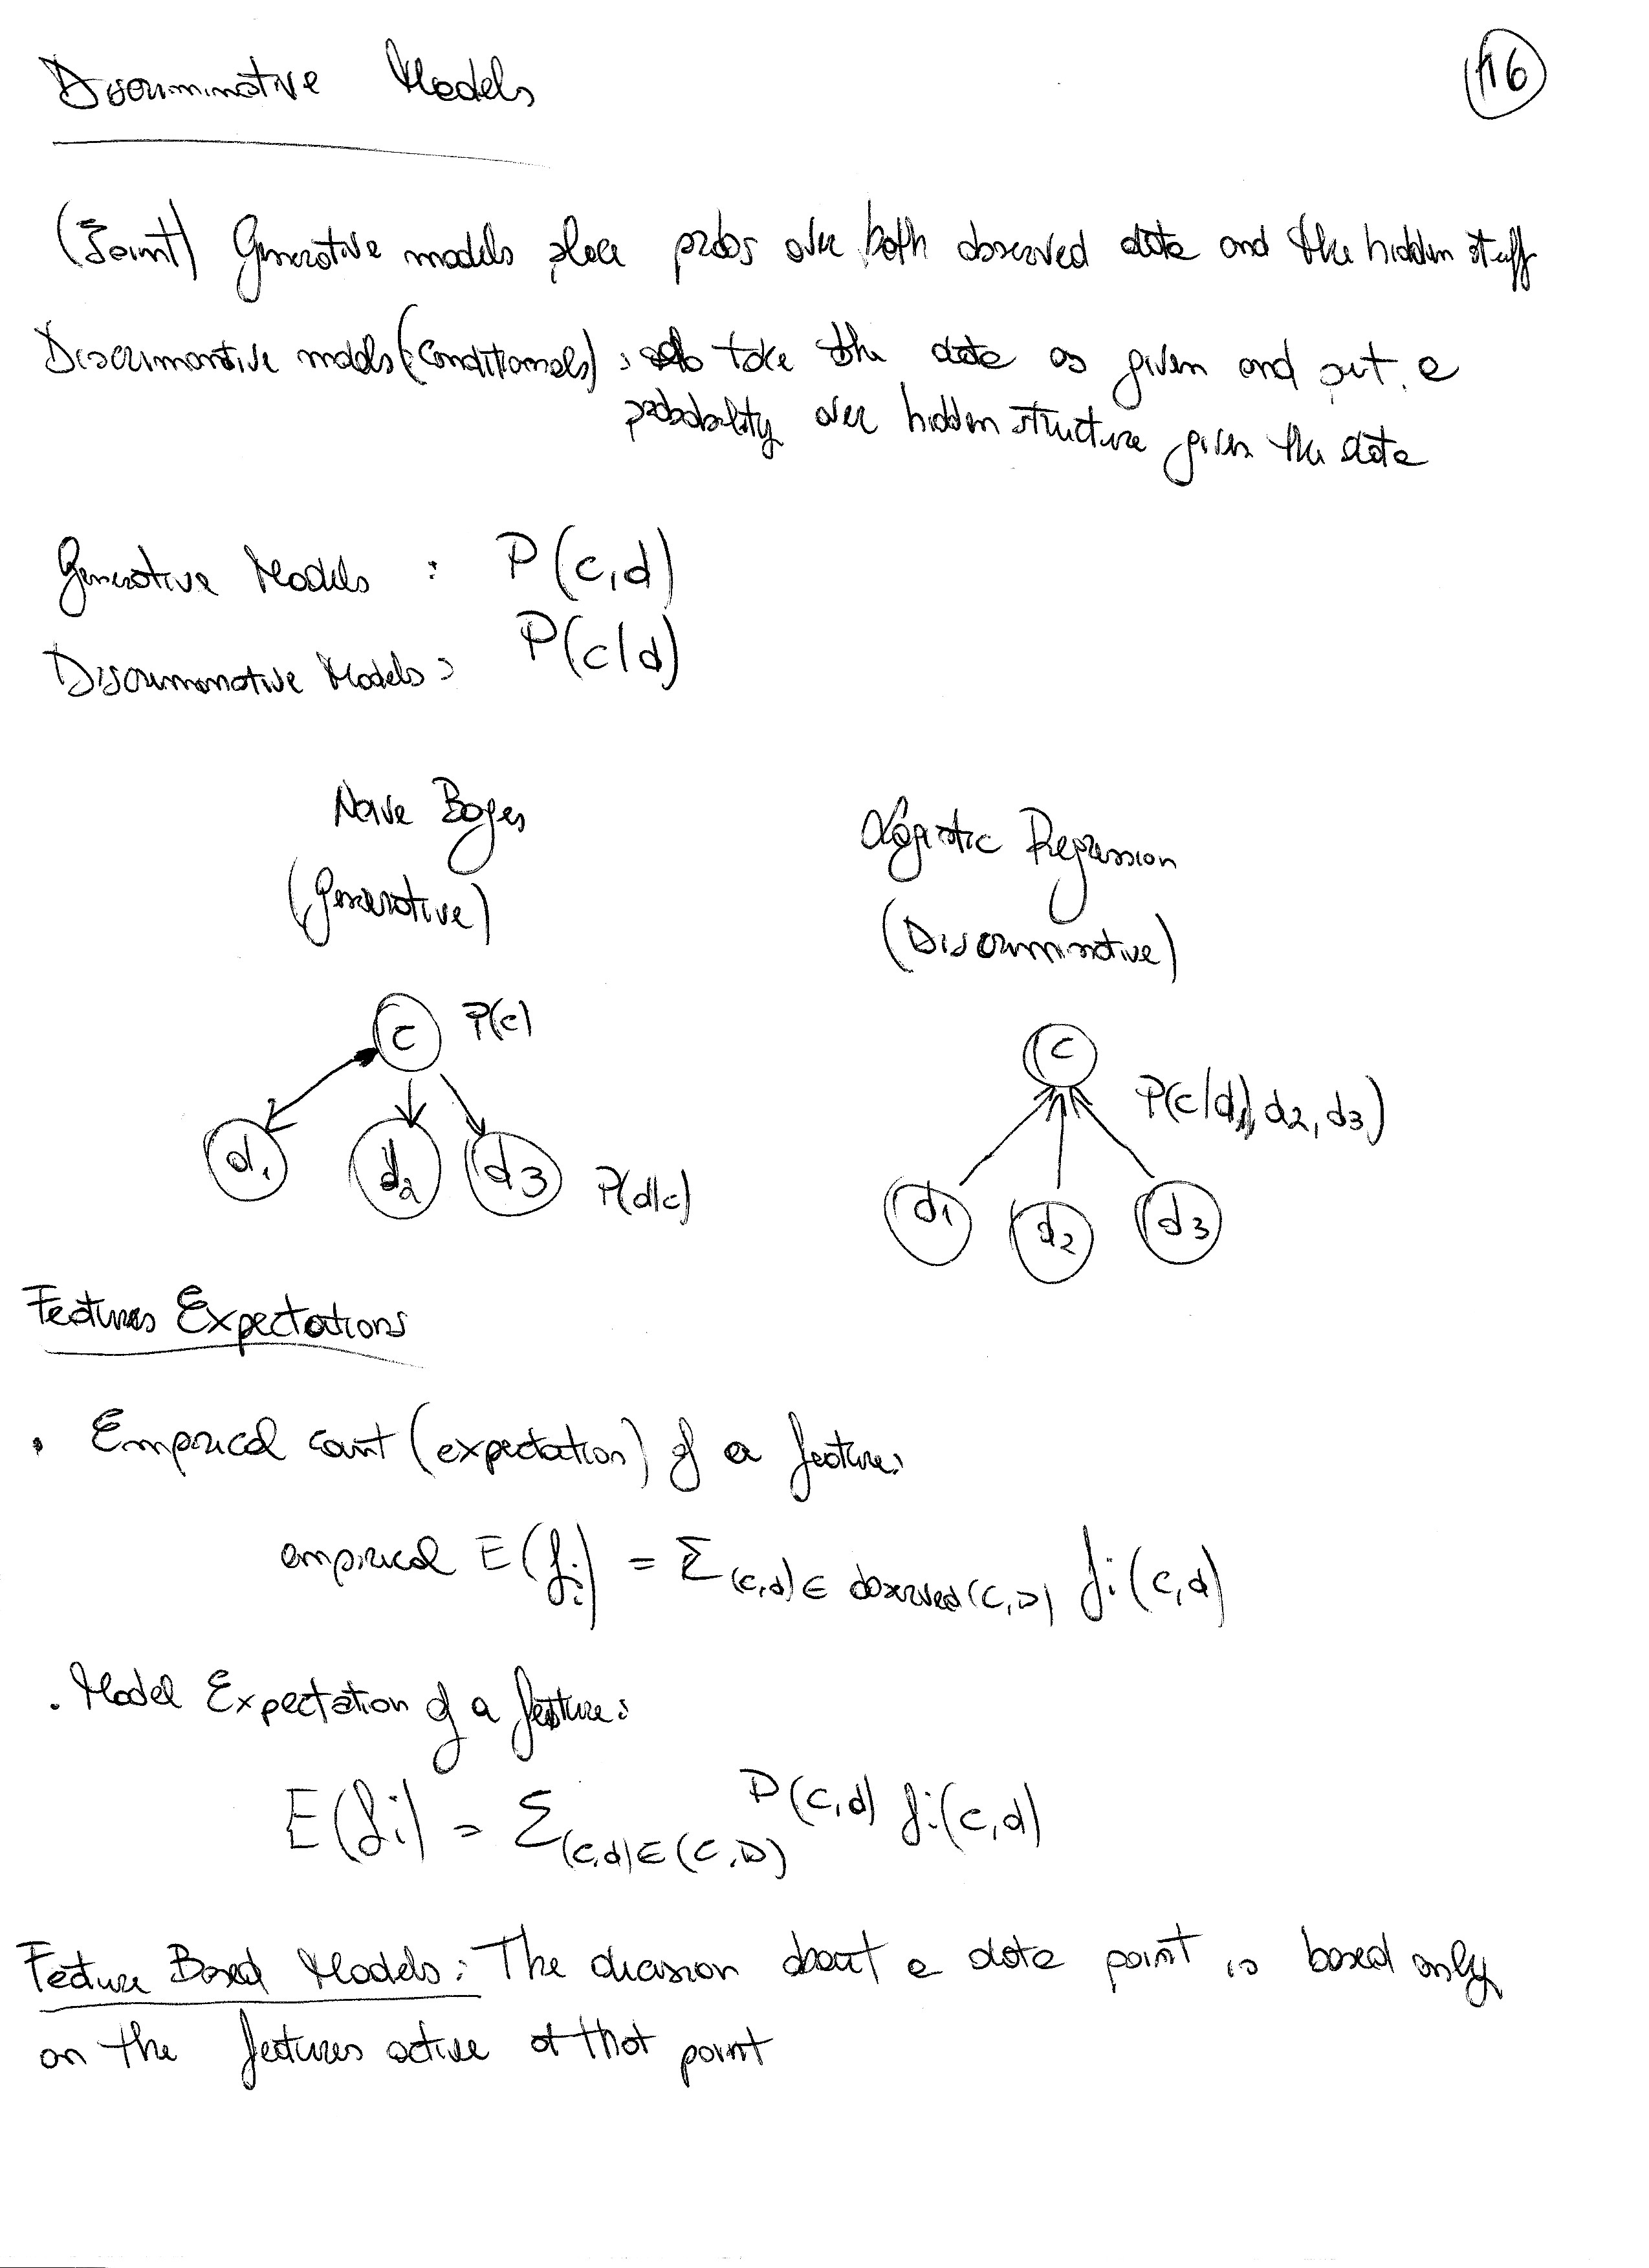 Discriminative Models
116
(Joint) Generative models place probs over both observed data and the hidden stuff
Discriminative models (conditionals): take the data as given and put a
probability over hidden structure given the data
Generative Models : P(c,d)
Discriminative Models: P(c|d)
Naive Bayes
(Generative)
Logistic Regression
(Discriminative)
c P(c)
d1 d2 d3 P(d|c)
c
P(c|d1, d2, d3)
d1 d2 d3
Features Expectations
• Empirical count (expectation) of a feature:
empirical E(fi) = Σ(c,d)∈ observed(C,D) fi(c,d)
• Model Expectation of a feature:
E(fi) = Σ(c,d)∈(C,D) P(c,d) fi(c,d)
Feature Based Models: The decision about a data point is based only
on the features active at that point